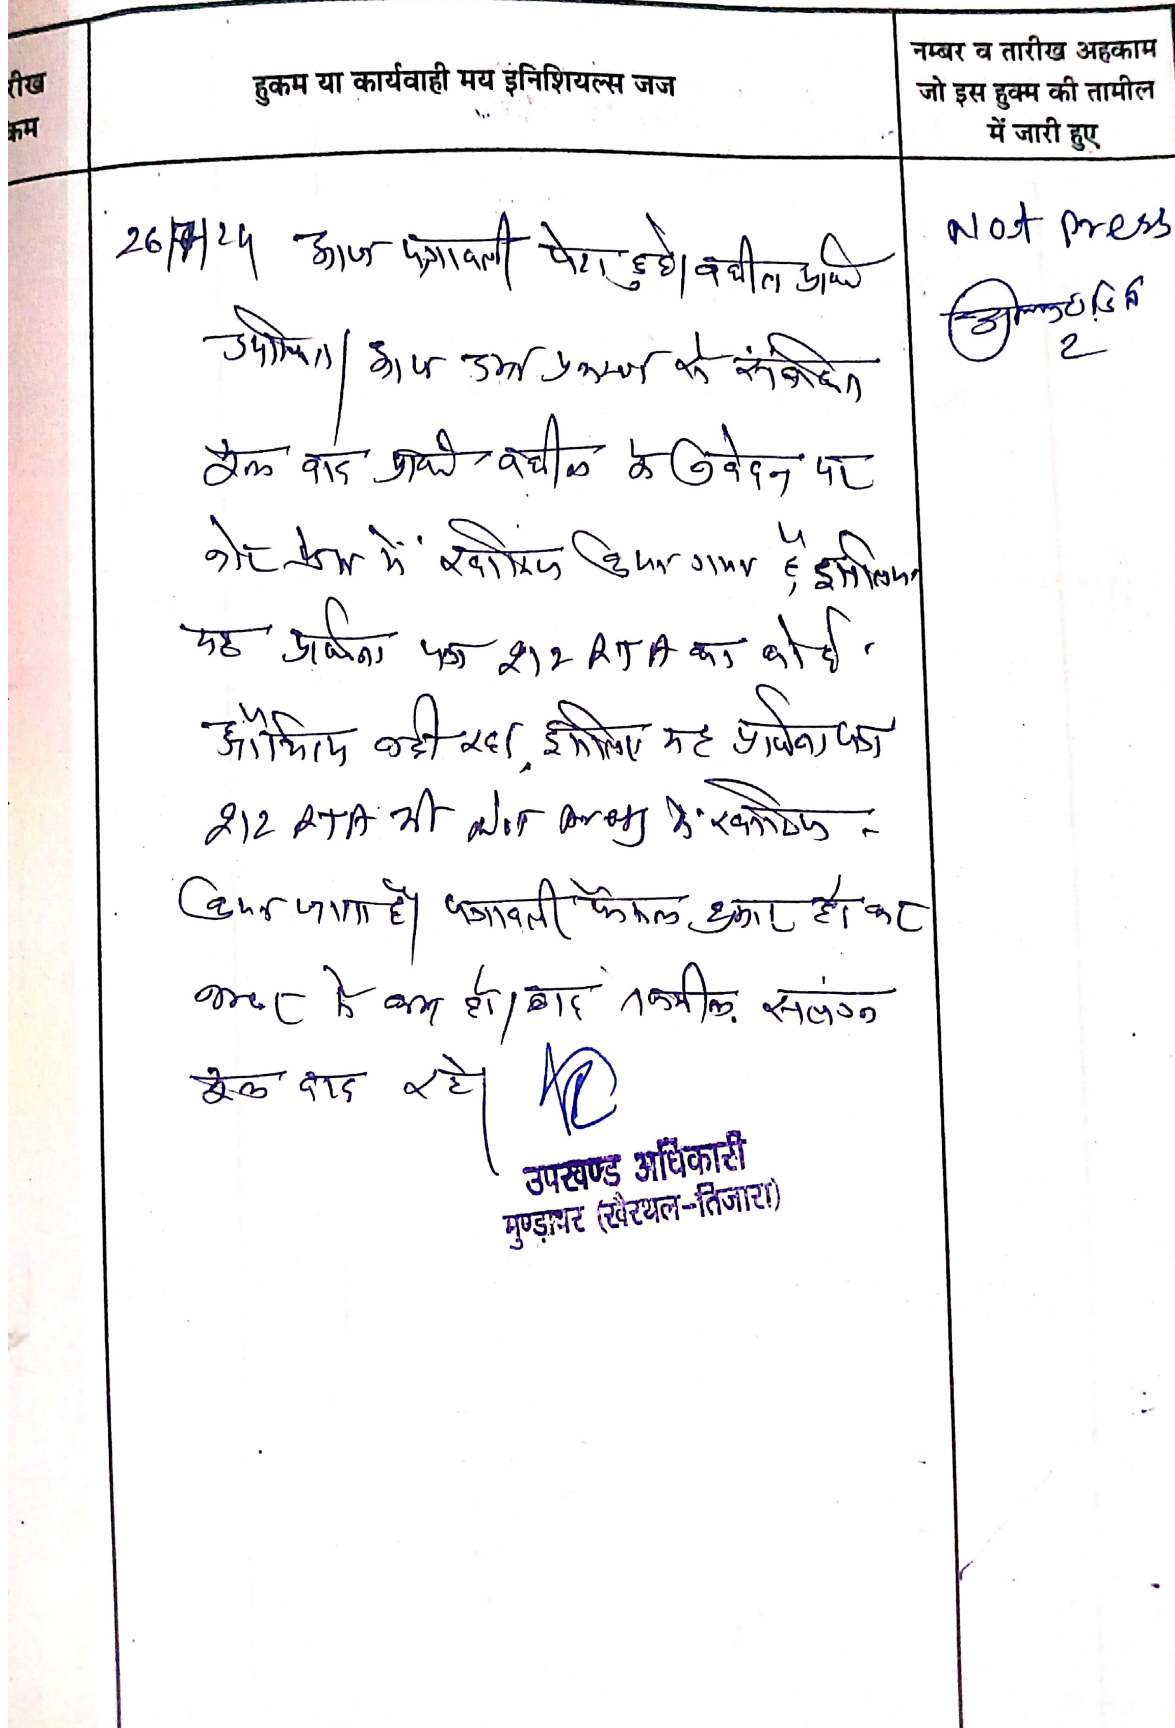 रीख
कम
हुकम या कार्यवाही मय इंनिशियल्स जज
नम्बर व तारीख अहकाम
जो इस हुक्म की तामील
में जारी हुए
26/7/24 आज पत्रावली पेश हुई। वकील प्रार्थी
उपस्थित। आज उक्त प्रकरण से संबंधित
मूल वाद प्रार्थी वकील के निवेदन पर
नोट प्रेस में खारिज किया गया है, इसलिए
यह प्रार्थना पत्र 212 RTA का कोई
औचित्य नही रहा, इसलिए यह प्रार्थना पत्र
212 RTA भी Not press में खारिज
किया जाता है। पत्रावली फैसल शुमार होकर
नम्बर से कम हो। बाद तकमील संलग्न
मूल वाद रहे।
Not press
2
उपखण्ड अधिकारी
मुण्डावर (खैरथल-तिजारा)